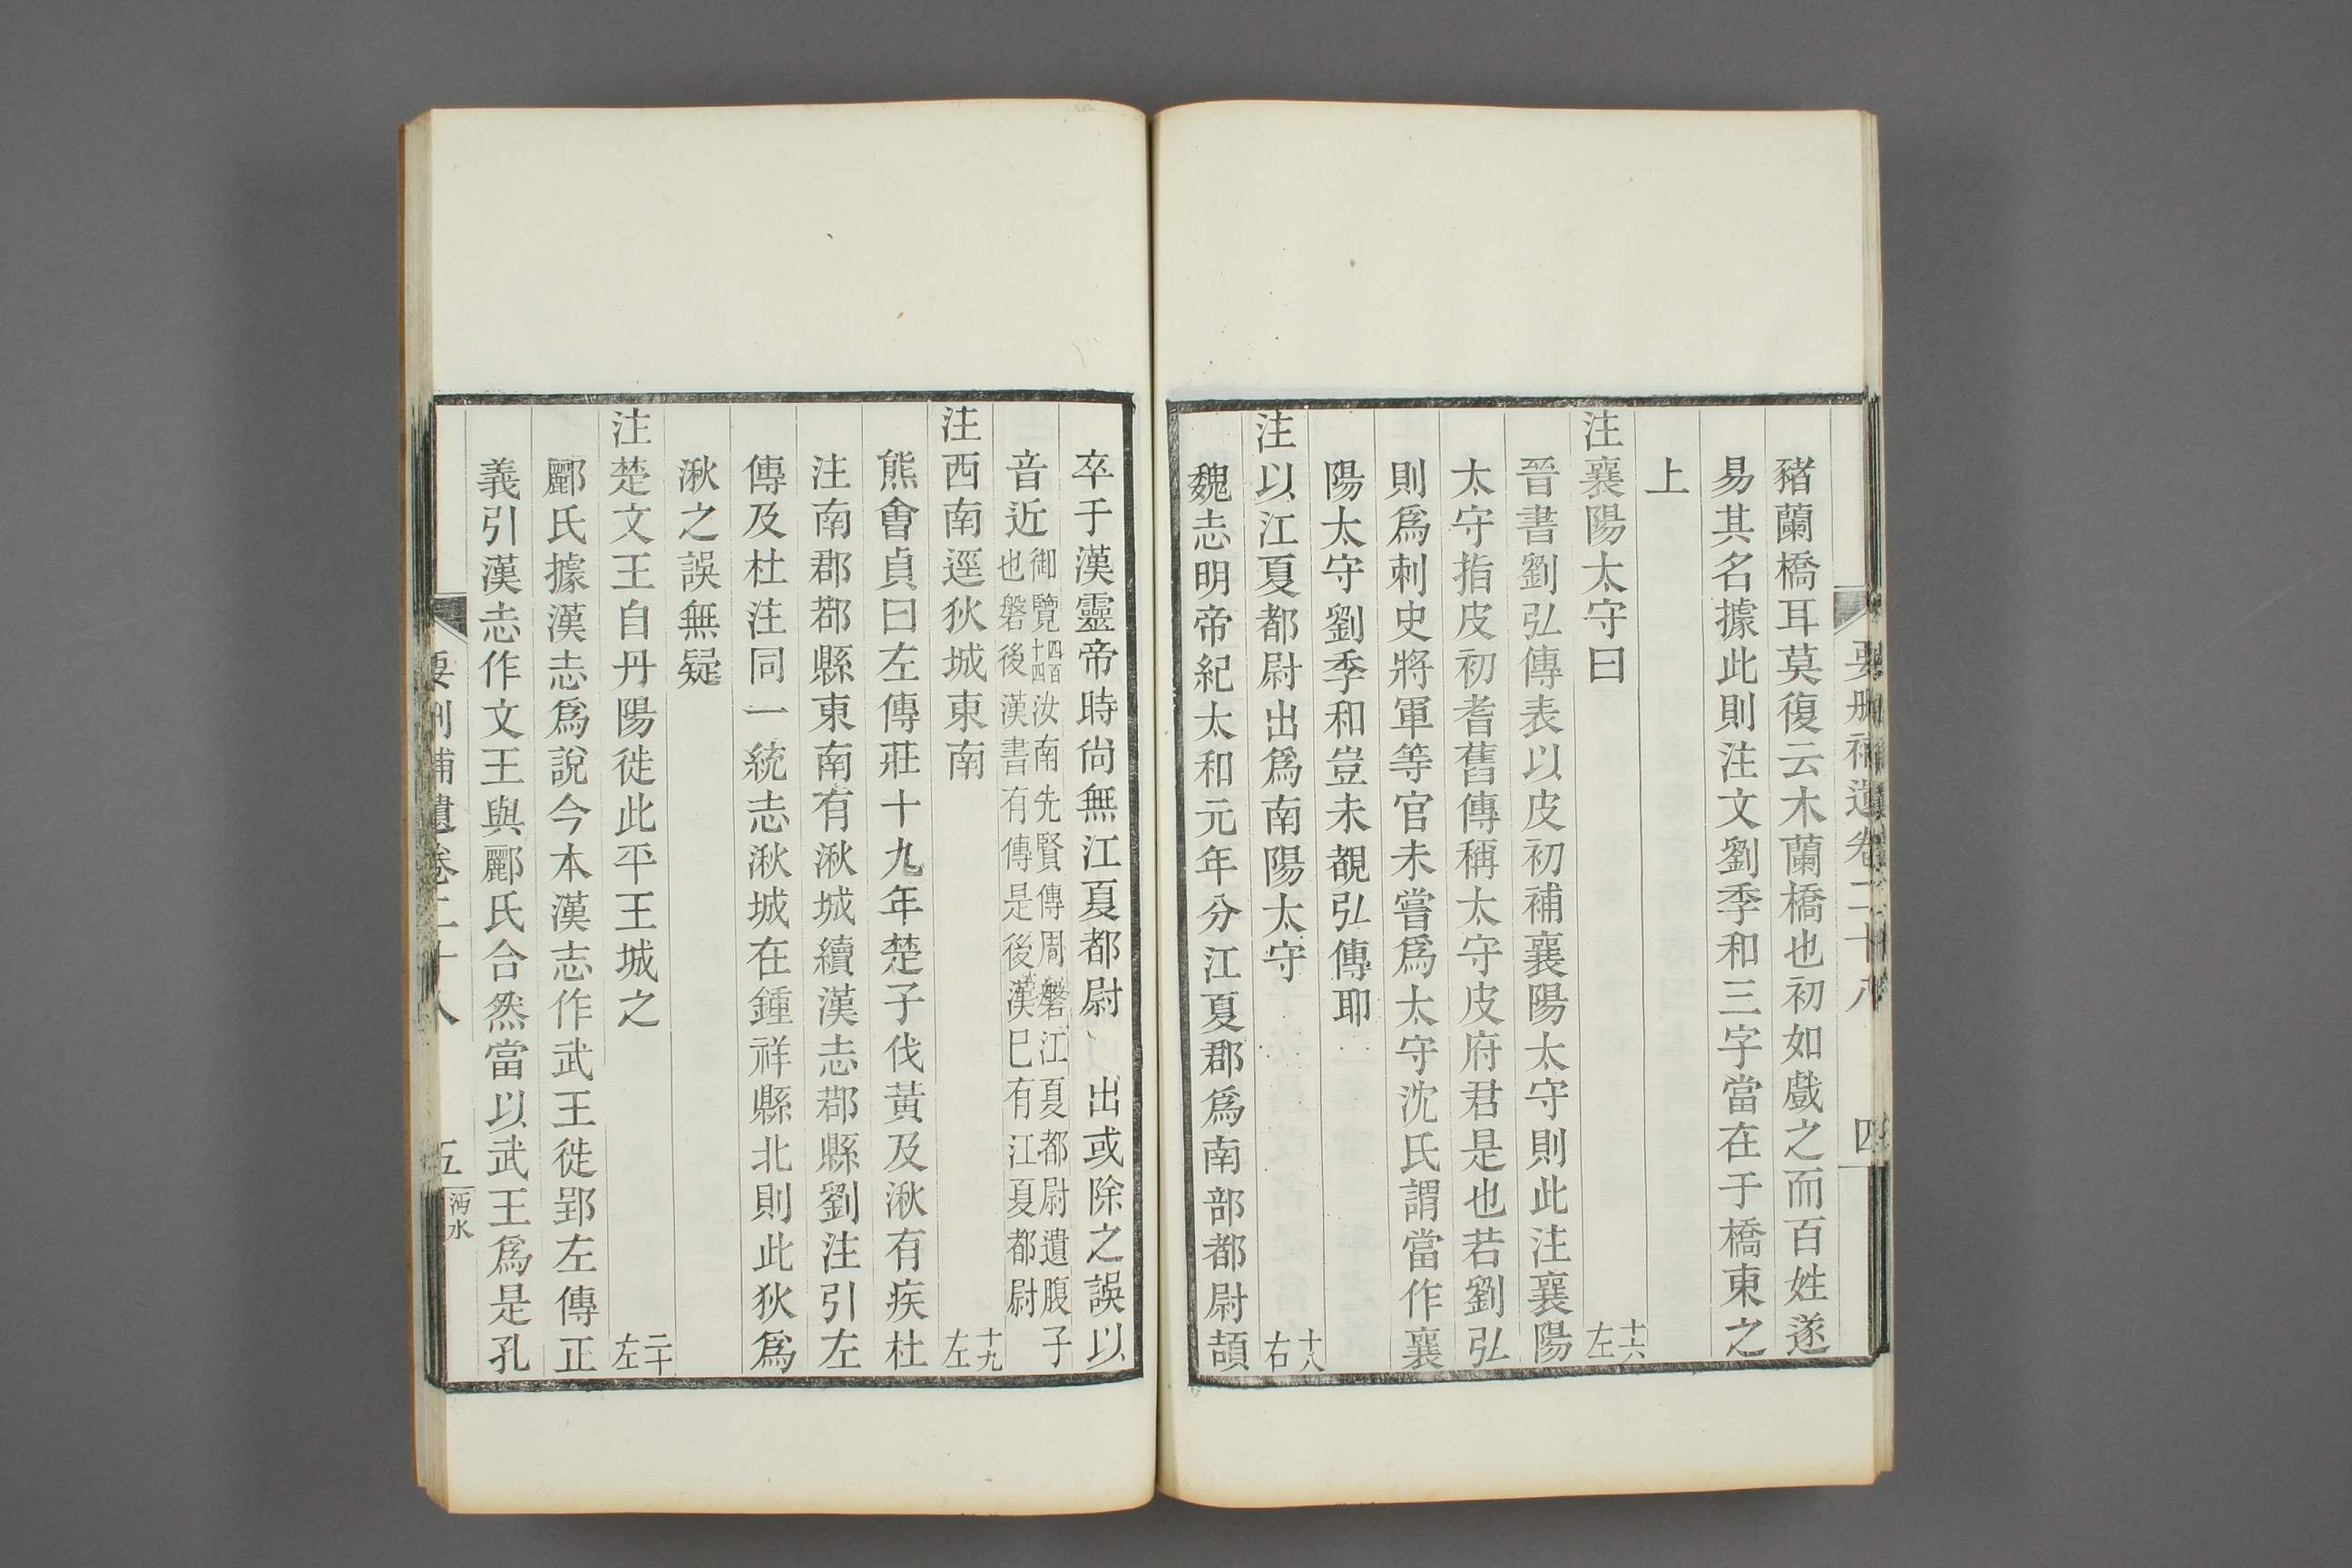 要刪補遺卷二十八 四
豬蘭橋耳莫復云木蘭橋也初如戲之而百姓遂
易其名據此則注文劉季和三字當在于橋東之
上
注襄陽太守曰 十六左
晉書劉弘傳表以皮初補襄陽太守則此注襄陽
太守指皮初耆舊傳稱太守皮府君是也若劉弘
則爲刺史將軍等官未嘗爲太守沈氏謂當作襄
陽太守劉季和豈未覩弘傳耶
注以江夏都尉出爲南陽太守 十八右
魏志明帝紀太和元年分江夏郡爲南部都尉頡
卒于漢靈帝時尚無江夏都尉 出或除之誤以
音近御覽四百十四汝南先賢傳周磐江夏都尉遺腹子也磐後漢書有傳是後漢已有江夏都尉
注西南逕狄城東南 十九左
熊會貞曰左傳莊十九年楚子伐黃及湫有疾杜
注南郡鄀縣東南有湫城續漢志鄀縣劉注引左
傳及杜注同一統志湫城在鍾祥縣北則此狄爲
湫之誤無疑
注楚文王自丹陽徙此平王城之 二十左
酈氏據漢志爲說今本漢志作武王徙郢左傳正
義引漢志作文王與酈氏合然當以武王爲是孔
要刪補遺卷二十八 五 沔水